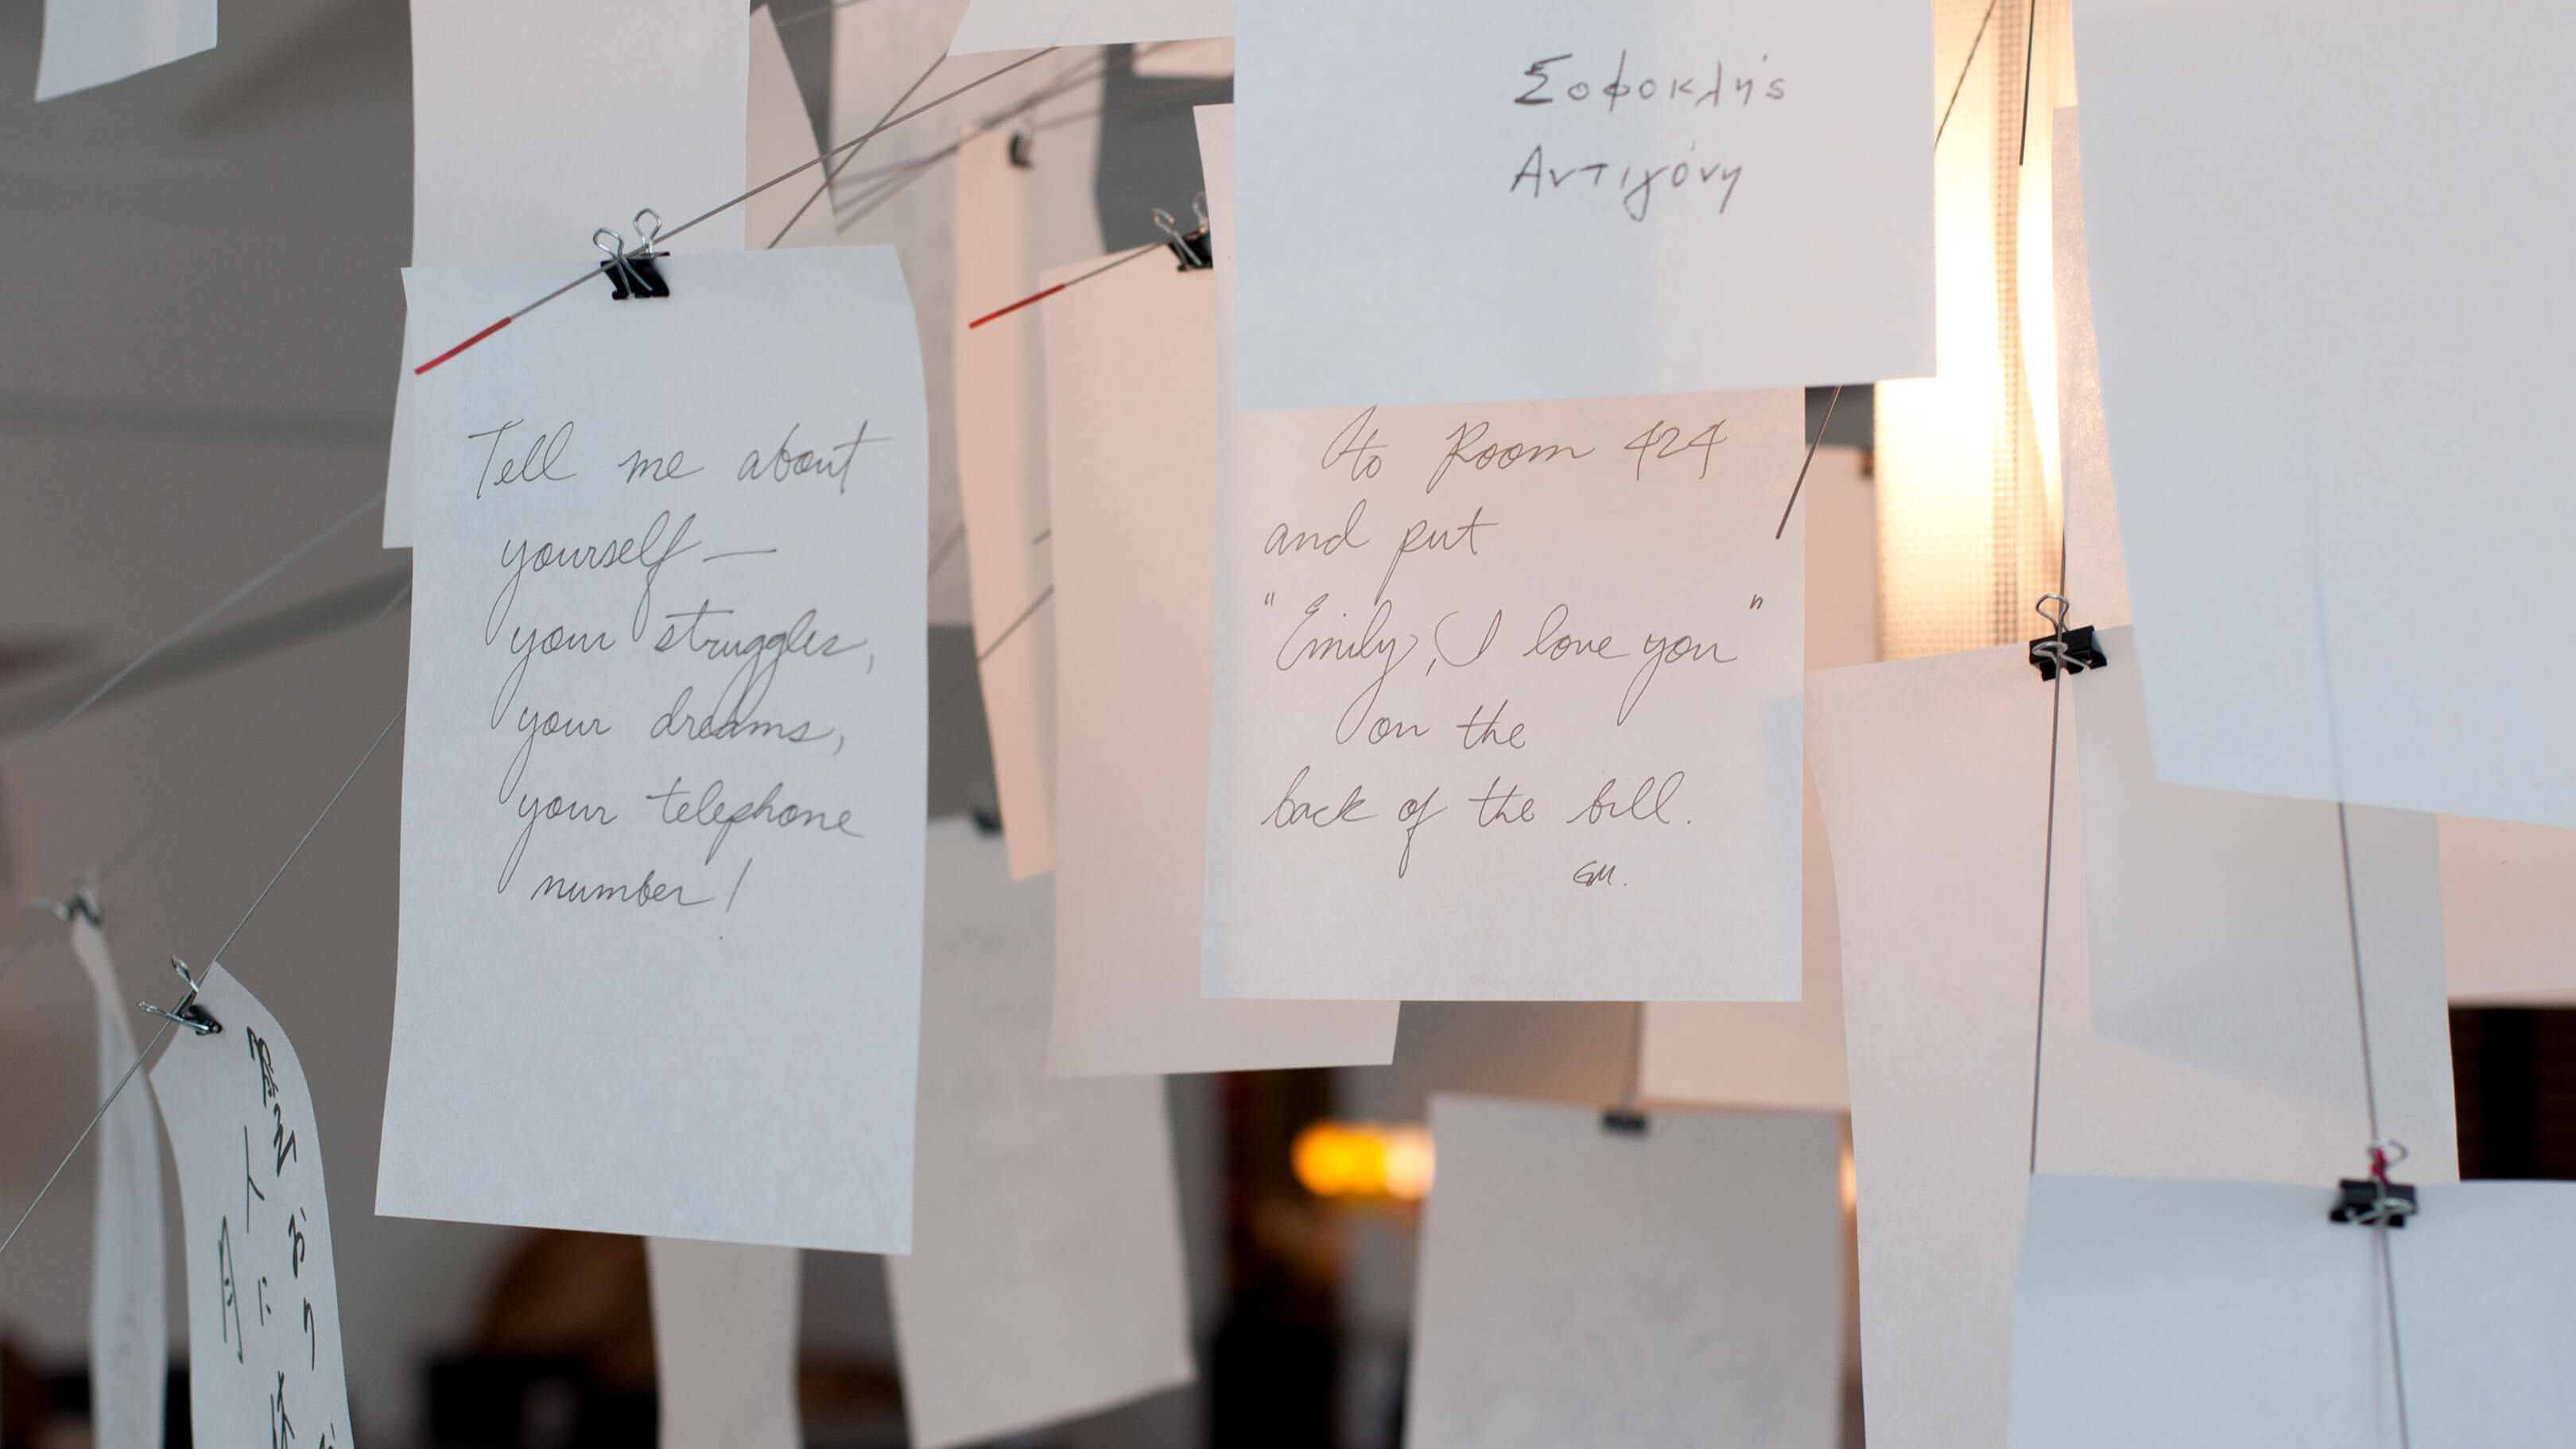 Σοφοκλής
Αντιγόνη
Tell me about
yourself —
your struggles,
your dreams,
your telephone
number!
to Room 424
and put
"Emily, I love you"
on the
back of the bill.
GM.
人に
月